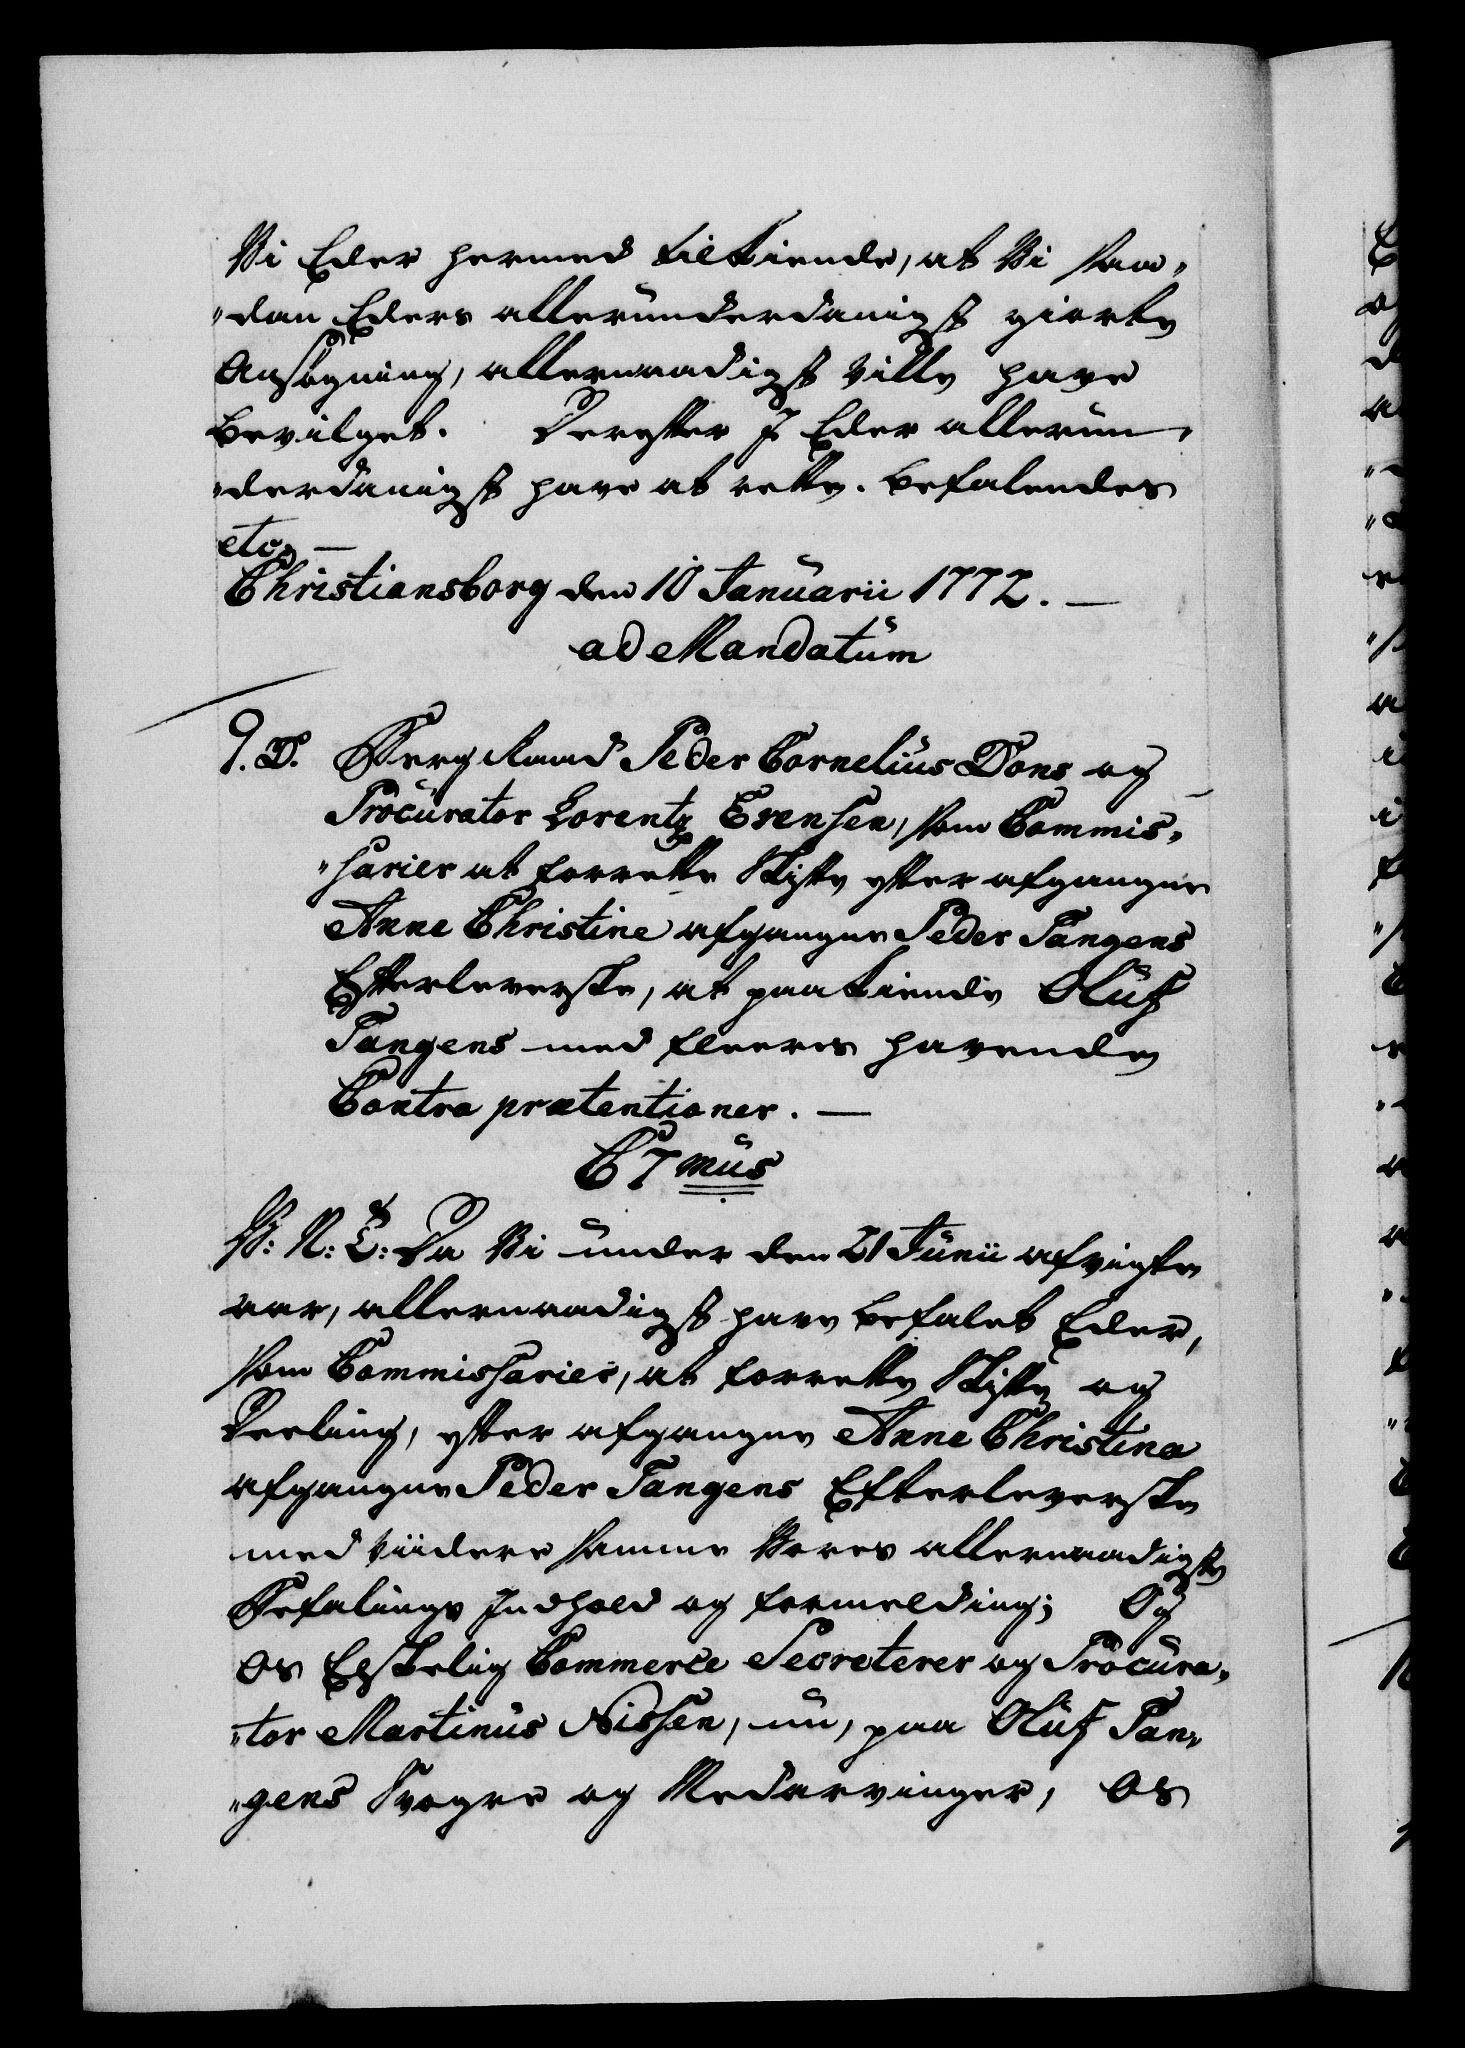 Vi Eder hermed tilkiende, at Vi saa„
„dan Eders allerunderdanigst giorte
Ansögning, allernaadigst ville have
bevilget. Derefter I Eder allerun„
„derdanigst have at rette. Befalendes
etc. —
Christiansborg den 10 Januarii 1772. —
ad Mandatum
9. D. Berg Raad Peder Cornelius Dons og
Procurator Lorentz Evensen, som Commis„
„sarier at forrette Skifte efter afgangne
Anne Christine afgangne Peder Tangens
Efterleverske, at paakiende Oluf
Tangens med fleeres havende
Contra prætentioner. —
C 7mus
V: N: &: Da Vi under den 21 Junii afvigte
aar, allernaadigst have befalet Eder,
som Commissarier, at forrette Skifte og
Deeling, efter afgangne Anne Christina
afgangne Peder Tangens Efterleverske
med viidere samme Vores allernaadigste
Befalings Indhold og formelding; Og
Os Elskelig Commerce Secreterer og Procura„
„tor Martinus Nissen, nu, paa Oluf Tan„
„gens Svogre og Medarvinger, Os